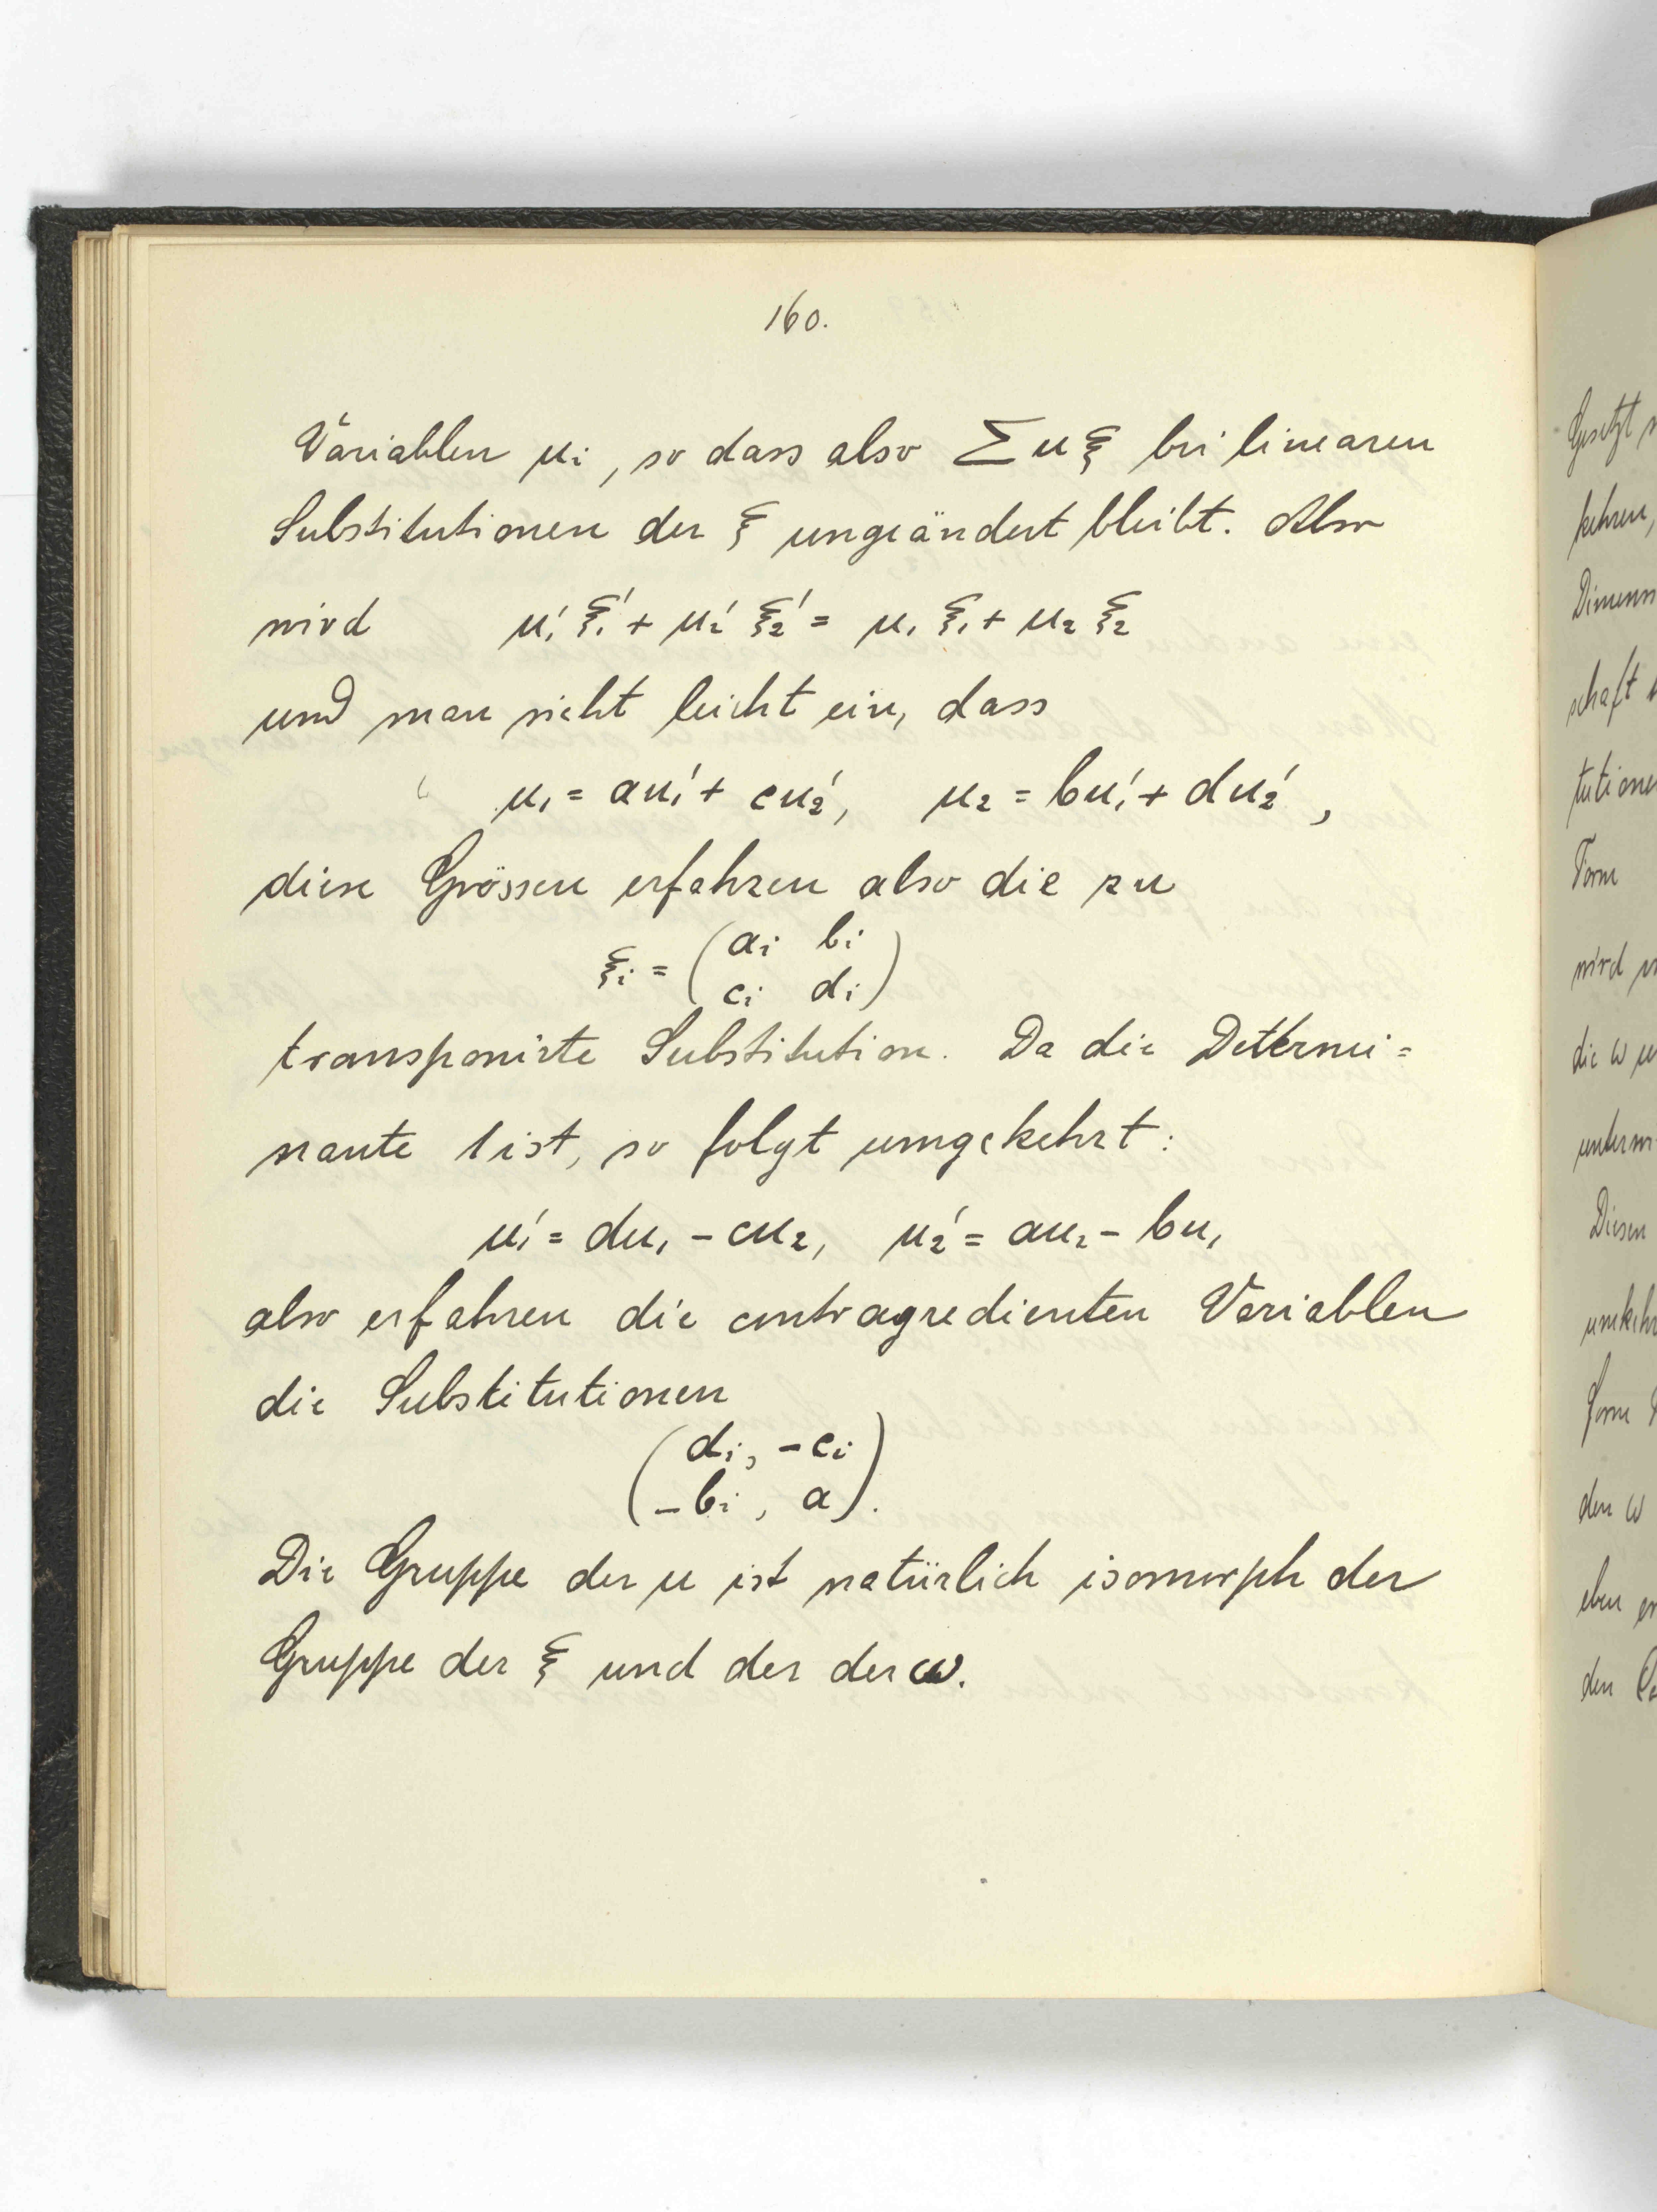 160.
Variablen u_i, so dass also Σ u ξ bei linearen
Substitutionen der ξ ungeändert bleibt. Also
wird u₁' ξ₁' + u₂' ξ₂' = u₁ ξ₁ + u₂ ξ₂
und man sieht leicht ein, dass
u₁ = au₁' + cu₂', u₂ = bu₁' + du₂',
diese Grössen erfahren also die zu
ξ_i = ( a_i b_i
c_i d_i )
transponirte Substitution. Da die Determi=
nante 1 ist, so folgt umgekehrt:
u₁' = du₁ - cu₂, u₂' = au₂ - bu₁
also erfahren die contragredienten Variablen
die Substitutionen
( d_i, -c_i
-b_i, a ).
Die Gruppe der u ist natürlich isomorph der
Gruppe der ξ und der der ω.
Gesetzt
kehren,
schaft
Form
wird
die ω
Diesen
den ω
eben
den